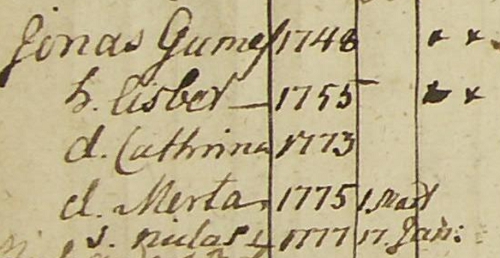 Jonas Gumes 1748
h. Lisbet 1755
d. Cathrina 1773
d. Merta 1775 1. Mart
s. nielas 1777 17. Jan: